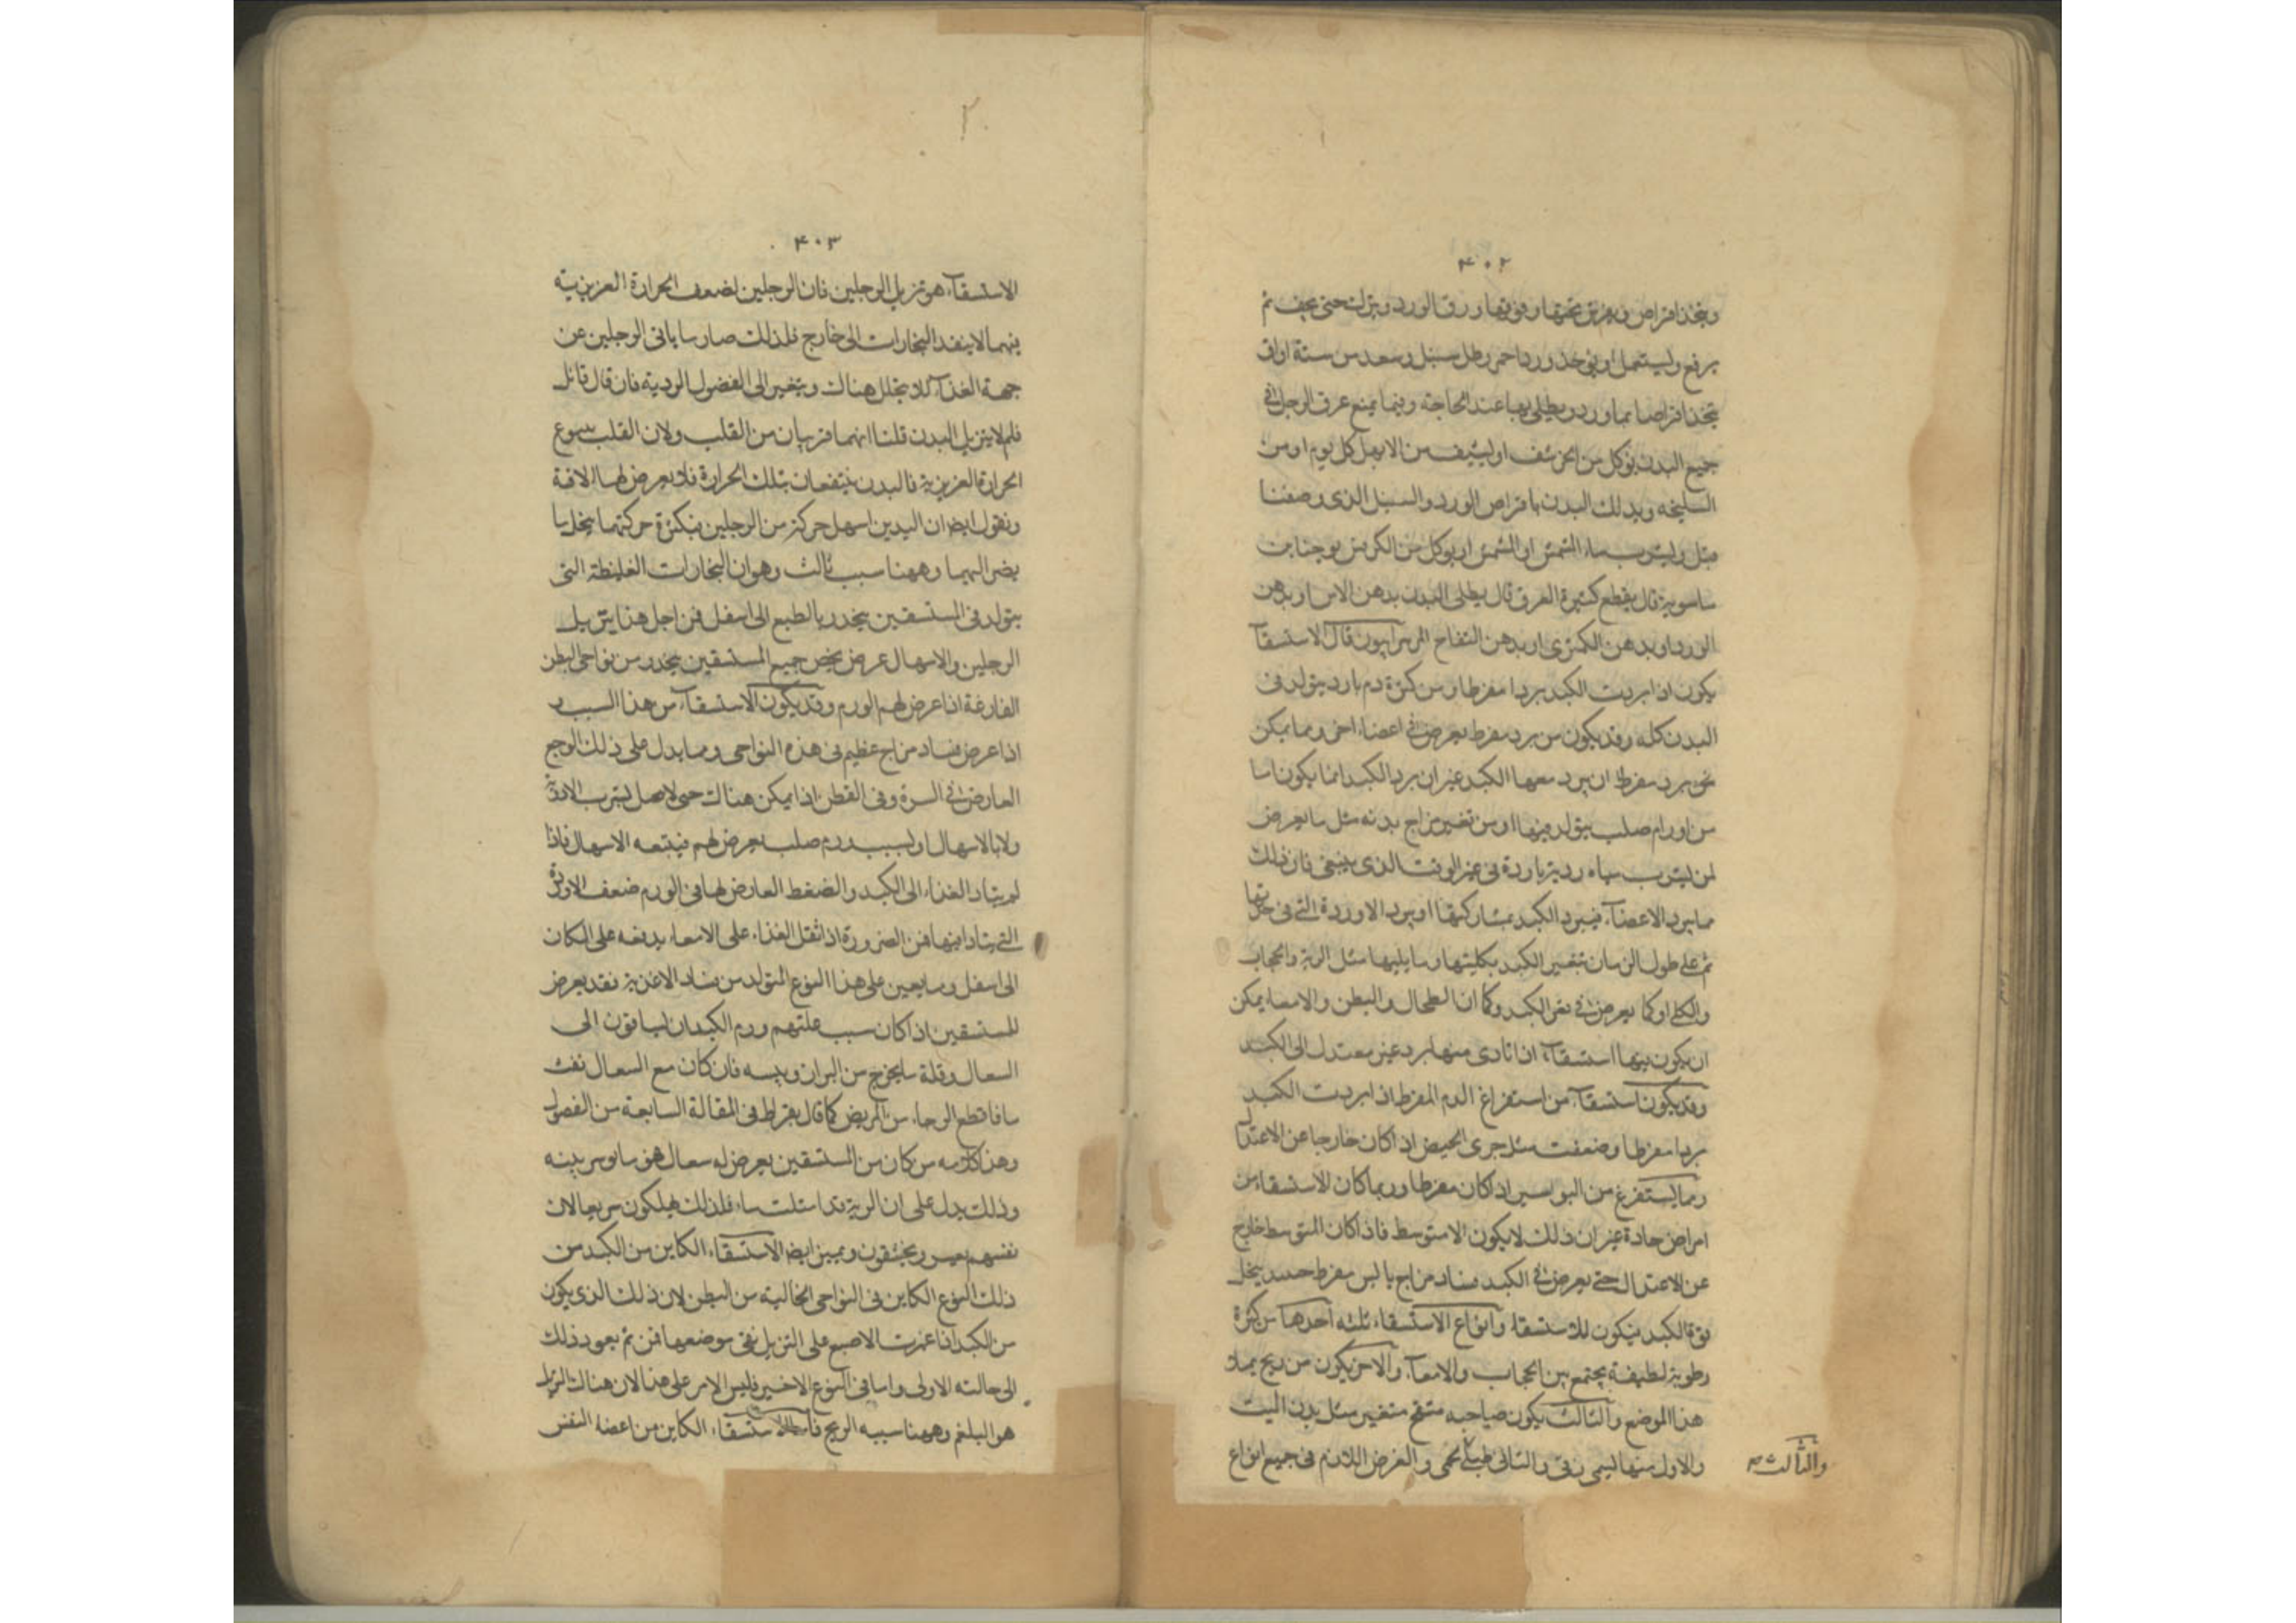 ۴۰۲
ويتخذ اقراص ويفرش تحتها وفوقها ورق الورد ويترك حتى يجف ثم
يرفع ويستعمل او يؤخذ ورد احمر رطل سنبل وسعد من ستة اواق
يتخذ اقراصا بماورد ويطلى بها عند الحاجة ومما يمنع عرق الرجل في
جميع البدن يؤكل من الحرشف او ليشيف من الابهل كل يوم او من
السليخه ويدلك البدن باقراص الورد والسنبل الذى وصفنا
قبل وليشرب ماء المشمش او المشمش او يؤكل من الكرفس يوحنا بن
ماسويه قال يقطع كثيرة العرق قال يطلى البدن بدهن الاس او بدهن
الورد او بدهن الكمثرى او بدهن التفاح المر سرابيون قال الاستسقآ
يكون اذا بردت الكبد بردا مفرطا ومن كثرة دم بارد يتولد فى
البدن كله وقد يكون من برد مفرط يعرض في اعضاء اخر ومما يمكن
متى برد مفرط ان يبرد معها الكبد غير ان برد الكبد انما يكون اما
من اورام صلب يتولد فيها او من تغير مزاج بدنه مثل ما يعرض
لمن ليشرب مياه ردية باردة فى غير الوقت الذى ينبغى فان ذلك
مما يبرد الاعضآء فيبرد الكبد بمشاركتها او يبرد الاوردة التى فى
ثم على طول الزمان تتغير الكبد بكليتها وما يليها مثل الرية والحجاب
والكلى او كما يعرض في نفس الكبد وكما ان الطحال والبطن والامعاء يمكن
ان يكون بهما استسقآء اذا تادى منها برد غير معتدل الى الكبد
وقد يكون استسقآء من استفراغ الدم المفرط اذا بردت الكبد
بردا مفرطا وضعفت مثل جرى الحيض اذا كان خارجا عن الاعتدال
وما يستفرغ من البواسير اذا كان مفرطا وربما كان الاستسقاء من
امراض حادة غير ان ذلك لا يكون الا متوسط فاذا كان المتوسط خارج
عن الاعتدال حتى يعرض في الكبد فساد مزاج يابس مفرط يخل
قوة الكبد فيكون للاستسقاء وانواع الاستسقاء ثلثه احدها من كثرة
رطوبة لطيفة يجتمع بين الحجاب والامعآء والاخر يكون من ريح يملأ
هذا الموضع والثالث يكون صاحبه منتفخ متغير مثل بدن الميت
والاول منها ليسمى زقى والثانى طبلى لحمى والعرض اللازم فى جميع انواع
والثالث
۲
۴۰۳
الاستسقآء هو تربل الرجلين فان الرجلين لضعف الحرارة العزيزية
فيهما لا ينفد البخارات الى خارج فلذلك صار ما ياتى الرجلين عن
جهة الغذآء لا يتحلل هناك ويتغير الى الفضول الردية فان قال قائل
فلم لا يتربل البدن قلنا انهما قريبان من القلب ولان القلب ينبوع
الحرارة العزيزية فالبدن ينتفعان بتلك الحرارة فلا يعرض لها الافة
ونقول ايضا ان اليدين اسهل حركة من الرجلين فبكثرة حركتهما يتحلل ما
يضر اليهما وههنا سبب ثالث وهو ان البخارات الغليظة التى
يتولد فى المستسقين ينحدر بالطبع الى اسفل فمن اجل هذا يتربل
الرجلين والاسهال عرض يخص جميع المستسقين ينحدر من نواحى البطن
الفارغة اذا عرض لهم الورم وقد يكون الاستسقآء من هذا السبب
اذا عرض فساد مزاج عظيم فى هذه النواحى ومما يدل على ذلك الوجع
العارض في السرة وفى القطن اذا يمكن هناك حتى لا يحل بشرب الادوية
ولا بالاسهال او بسبب ورم صلب يعرض لهم فيتبعه الاسهال فاذا
لم يتاد الغذاء الى الكبد والضغط العارض لها فى الورم ضعف الاوردة
التى يتادا فيها فمن الضرورة اذا ثقل الغذاء على الامعاء يدفعه على المكان
الى اسفل ومما يعين على هذا النوع المتولد من فساد الاغذية فقد يعرض
للمستسقين اذا كان سبب علتهم ورم الكبد ان يساقون الى
السعال وقلة ما يخرج من البراز ويبسه فان كان مع السعال نفث
ما فاقطع الرجاء من المريض كما قال بقراط فى المقالة السابعة من الفصول
وهذا كلامه من كان من المستسقين يعرض له سعال فهو مايوس منه
وذلك يدل على ان الرية قد امتلت ماء فلذلك يهلكون سريعا لان
نفسهم يعسر ويختنقون ويميز ايضا الاستسقآء الكاين من الكبد من
ذلك النوع الكاين فى النواحى الخالية من البطن لان ذلك الذى يكون
من الكبد اذا غمزت الاصبع على التربل بقى موضعها فمن ثم يعود ذلك
الى حالته الاولى واما فى النوع الاخير فليس الامر على هذا لان هناك التربل
هو البلغم وههنا سببه الريح فاما الاستسقاء الكاين من اعضاء النفس